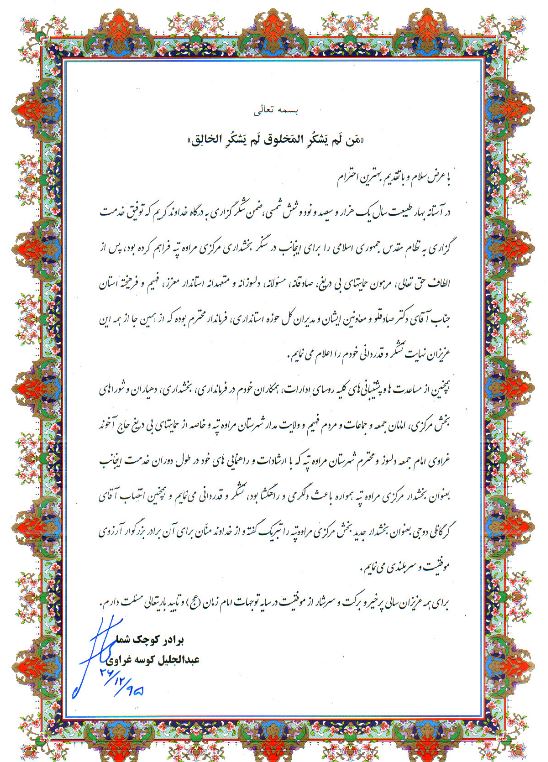 بسمه تعالی
«مَن لَم یَشکُرِ المَخلوق لَم یَشکُرِ الخالِق»
با عرض سلام و با تقدیم بهترین احترام
در آستانه بهار طبیعت سال یک هزار و سیصد و نود و شش شمسی، ضمن شکر گزاری به درگاه خداوند کریم که توفیق خدمت
گزاری به نظام مقدس جمهوری اسلامی را برای اینجانب در سنگر بخشداری مرکزی مراوه تپه فراهم کرده بود، پس از
الطاف حق تعالی، مرهون حمایتهای بی دریغ، صادقانه، مسئولانه، دلسوزانه و متعهدانه استاندار معزز، فهیم و فرهیخته استان
جناب آقای دکتر صادقلو و معاونین ایشان و مدیران کل حوزه استانداری، فرماندار محترم بوده که از همین جا از همه این
عزیزان نهایت تشکر و قدردانی خودم را اعلام می نمایم.
همچنین از مساعدت ها و پشتیبانی های کلیه روسای ادارات، همکاران خودم در فرمانداری، بخشداری، دهیاران و شوراهای
بخش مرکزی، امامان جمعه و جماعات و مردم فهیم و ولایت مدار شهرستان مراوه تپه و خاصه از حمایتهای بی دریغ حاج آخوند
غراوی امام جمعه دلسوز و محترم شهرستان مراوه تپه که با ارشادات و راهنمایی های خود در طول دوران خدمت اینجانب
بعنوان بخشدار مرکزی مراوه تپه همواره باعث دلگرمی و راهگشا بود، تشکر و قدردانی می نمایم و همچنین انتصاب آقای
کر کاملی دوجی بعنوان بخشدار جدید بخش مرکزی مراوه تپه را تبریک گفته و از خداوند منان برای آن برادر بزرگوار آرزوی
موفقیت و سربلندی می نمایم.
برای همه عزیزان سالی پر خیر و برکت و سرشار از موفقیت در سایه توجهات امام زمان (عج) و تایید باریتعالی مسئلت دارم.
برادر کوچک شما
عبدالجلیل کوسه غراوی
۹۵/۱۲/۲۶